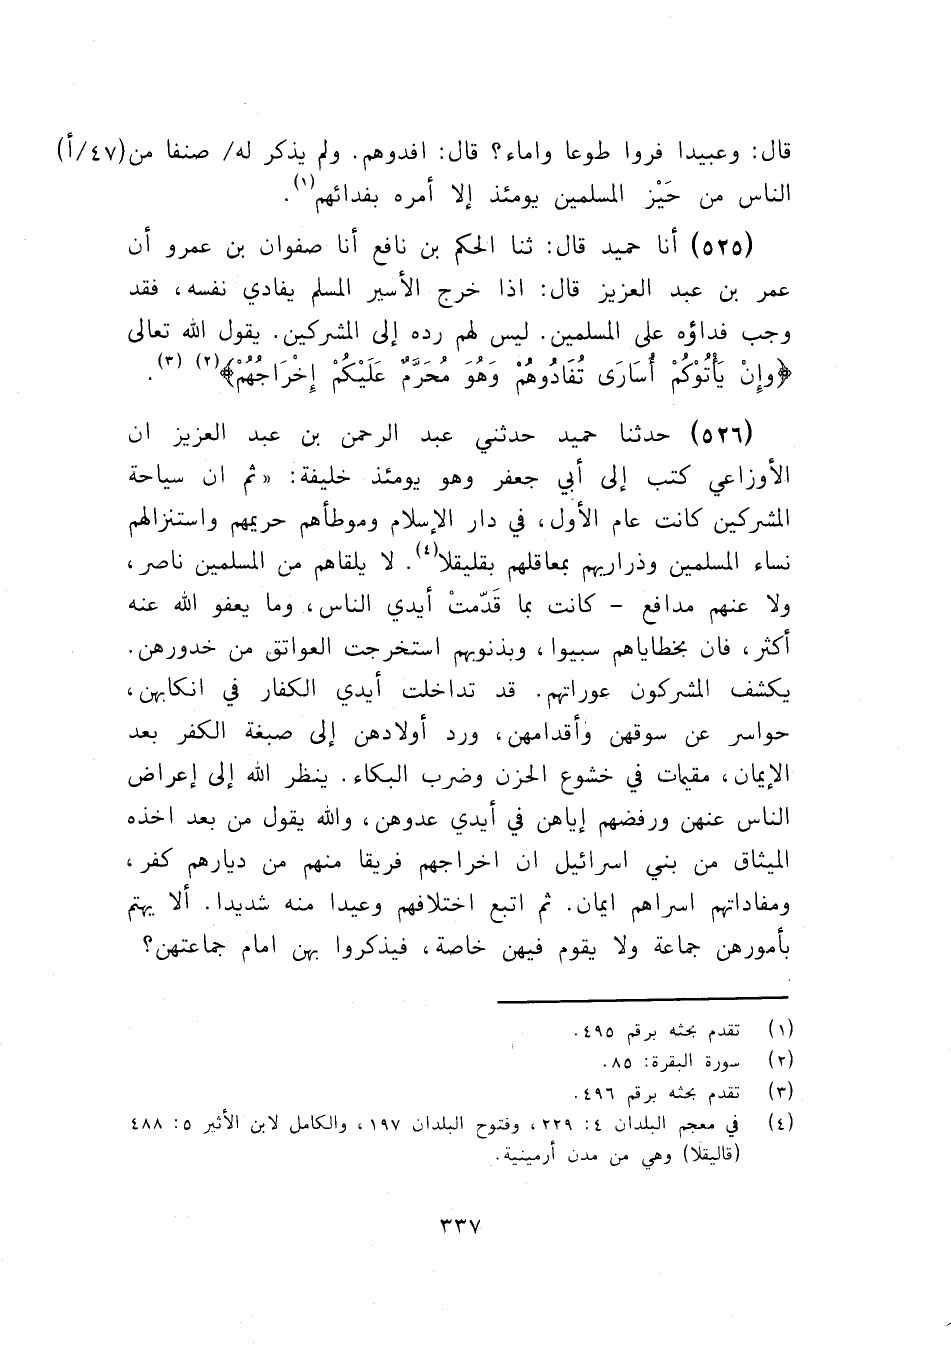 قال: وعبيدا فروا طوعا واماء؟ قال: افدوهم. ولم يذكر له/ صنفا من (٤٧/أ)
الناس من حَيْز المسلمين يومئذ إلا أمره بفدائهم(١).
(٥٢٥) أنا حميد قال: ثنا الحكم بن نافع أنا صفوان بن عمرو أن
عمر بن عبد العزيز قال: اذا خرج الأسير المسلم يفادي نفسه، فقد
وجب فداؤه على المسلمين. ليس لهم رده إلى المشركين. يقول الله تعالى
﴿وإِنْ يَأْتُوكُمْ أُسَارَى تُفَادُوهُمْ وَهُوَ مُحَرَّمٌ عَلَيْكُمْ إخْرَاجُهُمْ﴾(٢) (٣).
(٥٢٦) حدثنا حميد حدثني عبد الرحمن بن عبد العزيز ان
الأوزاعي كتب إلى أبي جعفر وهو يومئذ خليفة: «ثم ان سياحة
المشركين كانت عام الأول، في دار الإسلام وموطأهم حريمهم واستنزالهم
نساء المسلمين وذراريهم بمعاقلهم بقليقلا(٤). لا يلقاهم من المسلمين ناصر،
ولا عنهم مدافع - كانت بما قَدّمتْ أيدي الناس، وما يعفو الله عنه
أكثر، فان بخطاياهم سبيوا، وبذنوبهم استخرجت العواتق من خدورهن.
يكشف المشركون عوراتهم. قد تداخلت أيدي الكفار في انكابهن،
حواسر عن سوقهن وأقدامهن، ورد أولادهن إلى صبغة الكفر بعد
الإيمان، مقيمات في خشوع الحزن وضرب البكاء. ينظر الله إلى إعراض
الناس عنهن ورفضهم إياهن في أيدي عدوهن، والله يقول من بعد اخذه
الميثاق من بني اسرائيل ان اخراجهم فريقا منهم من ديارهم كفر،
ومفاداتهم اسراهم ايمان. ثم اتبع اختلافهم وعيدا منه شديدا. ألا يهتم
بأمورهن جماعة ولا يقوم فيهن خاصة، فيذكروا بهن امام جماعتهن؟
(١) تقدم بحثه برقم ٤٩٥.
(٢) سورة البقرة: ٨٥.
(٣) تقدم بحثه برقم ٤٩٦.
(٤) في معجم البلدان ٤: ٢٢٩، وفتوح البلدان ١٩٧، والكامل لابن الأثير ٥: ٤٨٨
(قاليقلا) وهي من مدن أرمينية.
٣٣٧